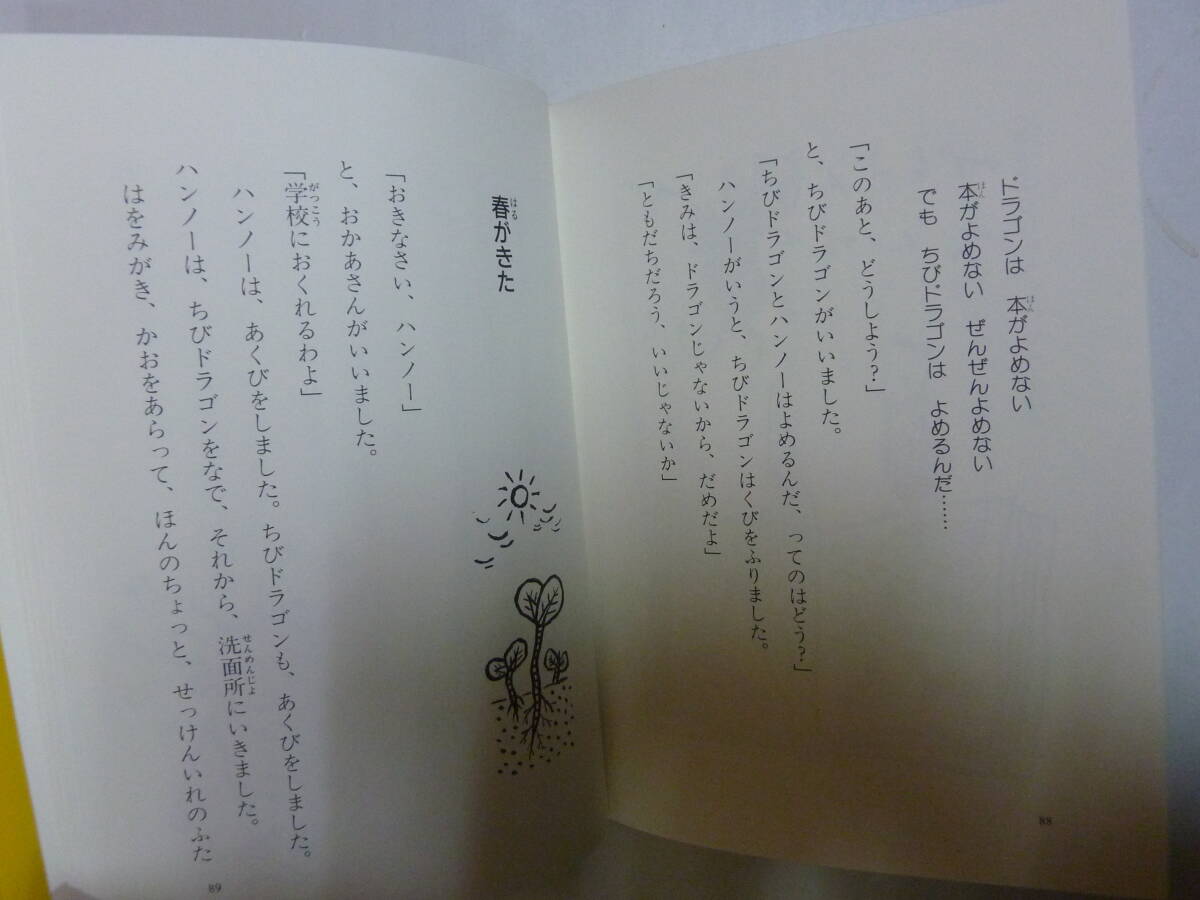 ドラゴンは　本がよめない
本がよめない　ぜんぜんよめない
でも　ちびドラゴンは　よめるんだ……
「このあと、どうしよう？」
と、ちびドラゴンがいいました。
「ちびドラゴンとハンノーはよめるんだ、ってのはどう？」
ハンノーがいうと、ちびドラゴンはくびをふりました。
「きみは、ドラゴンじゃないから、だめだよ」
「ともだちだろう、いいじゃないか」
88
春がきた
「おきなさい、ハンノー」
と、おかあさんがいいました。
「学校におくれるわよ」
ハンノーは、あくびをしました。ちびドラゴンも、あくびをしました。
ハンノーは、ちびドラゴンをなで、それから、洗面所にいきました。
はをみがき、かおをあらって、ほんのちょっと、せっけんいれのふた
89